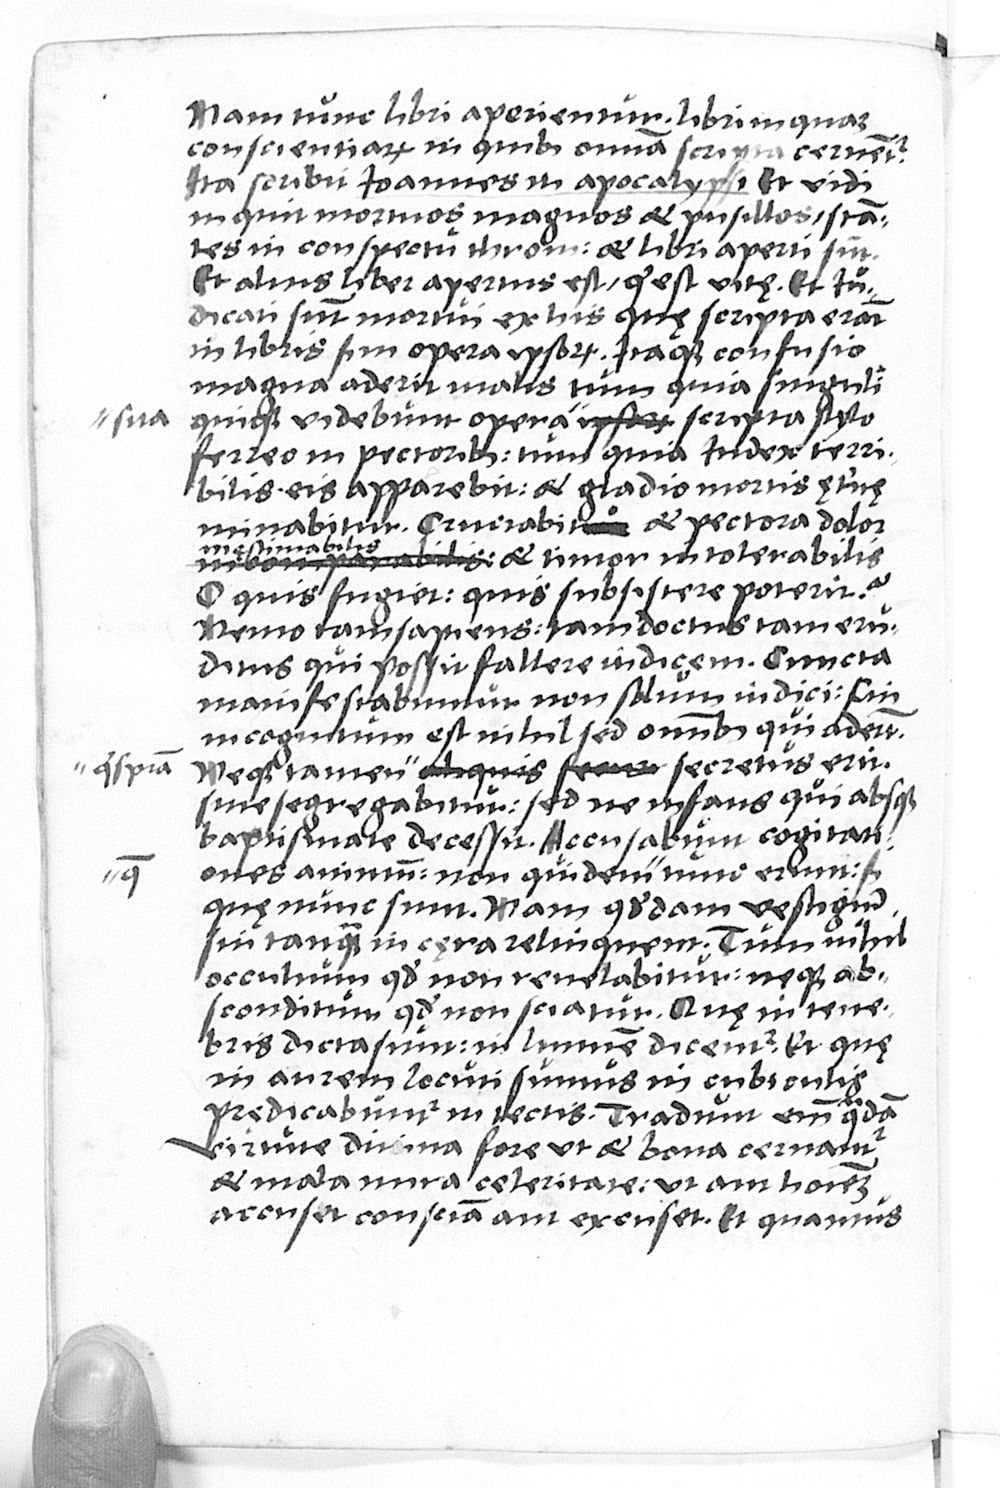 Nam tunc libri aperientur. libri inquaꝫ
conscientiaꝝ in quibꝰ omnia scripta cernēt᷑.
Ita scribit Ioannes in apocalypsi Et vidi
inquit mortuos magnos & pusillos, stā-
tes in conspectu throni: & libri aperti sūt.
Et alius liber apertus est, q̄ est vitę. Et Iu-
dicati sūt mortui ex his quę scripta erāt
in libris scḋm opera ipsoꝝ. Itaqꝫ confusio
magna aderit malis tum quia singuli
quiqꝫ videbunt opera " ipsoꝝ scripta stylo
" sua
ferreo in pectoribꝰ: tum quia Iudex terri-
bilis eis apparebit: & gladio mortis ętnę
minabitur. Cruciabit & pectora dolor
inestimabilis
incomparabilis: & timor intolerabilis
O quis fugiet: quis subsistere poterit?
Nemo tam sapiens: tam doctus tam eru-
ditus qui possit fallere iudicem. Cuncta
manifestabuntur non solum iudici: cui
incognitum est nihil sed omībꝰ qui aderūt.
Neqꝫ tamen " aliquis secretus erit.
" q̄spiā
siue segregabitur: sed ne infans qui absqꝫ
baptismate decessit. Accusabunt cogitati-
ones animū: non quidem " tunc erunt: si
" q̄
quę nunc sunt. Nam qd̄dam vestigiū
sui tanqꝫ in cęra relinquent. Tum nihil
occultum qd̄ non reuelabitur: neqꝫ ab-
sconditum qd̄ non sciatur. Quę in tene-
bris dicta sunt: in lumīe dicent᷑. Et quę
in aurem locuti sumus in cubiculis
prędicabunt᷑ in tectis. Tradunt em̄ q̄dā
virtute diuina fore vt & bona cernant᷑
& mala mira celeritate: vt aut hoīeꝫ
accuset consciā aut excuset. Et quamuis